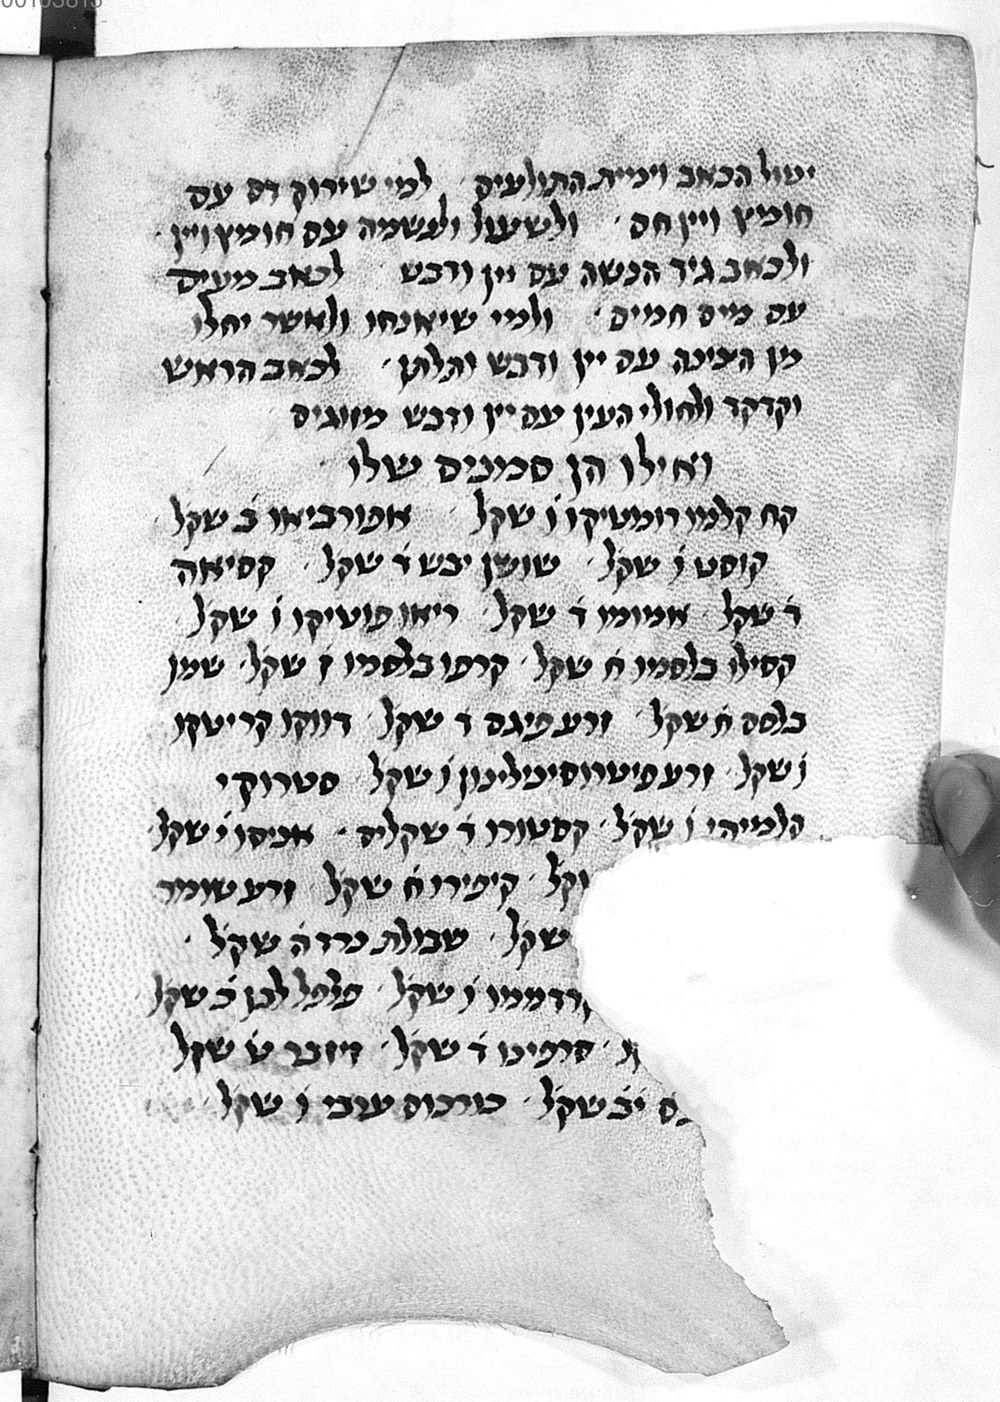 00105815
יטול הכאב וימיית התולעים למי שירוק דם עם
חומץ ויין חם ולשעול ולנשמה עם חומץ ויין
ולכאב גיד הנשה עם יין ודבש לכאב מעים
עם מים חמים ולמי שיאנחו ולאשר יחלו
מן הצינה עם יין ודבש ותלתן לכאב הראש
וקדקד ולחולי העין עם יין ודבש מזוגים
ואילו הן סמנים שלו
קח קלמו רומטיקו ו שקל אפורביאו ב שקל
קוסט ו שקל שושן יבש ד שקל קסיאה
ד שקל אמומו ד שקל ריאו פוטיקו ו שקל
קסילו בלסמו ח שקל קרפו בלסמו ז שקל שמן
בלסם ח שקל זרע פיגם ד שקל דווקו קריטקו
ו שקל זרע פיטרוסילינון ו שקל סטרוקי
קלמייהי ו שקל קסטורו ד שקלים אניסו י שקל
שקל קיפירו ח שקל זרע שומר
שקל שבולת נרד ה שקל
קרדממו ו שקל פלפל לבן ב שקל
סרפינו ד שקל זיזבר ט שקל
יב שקל כורכום ערבי ו שקל